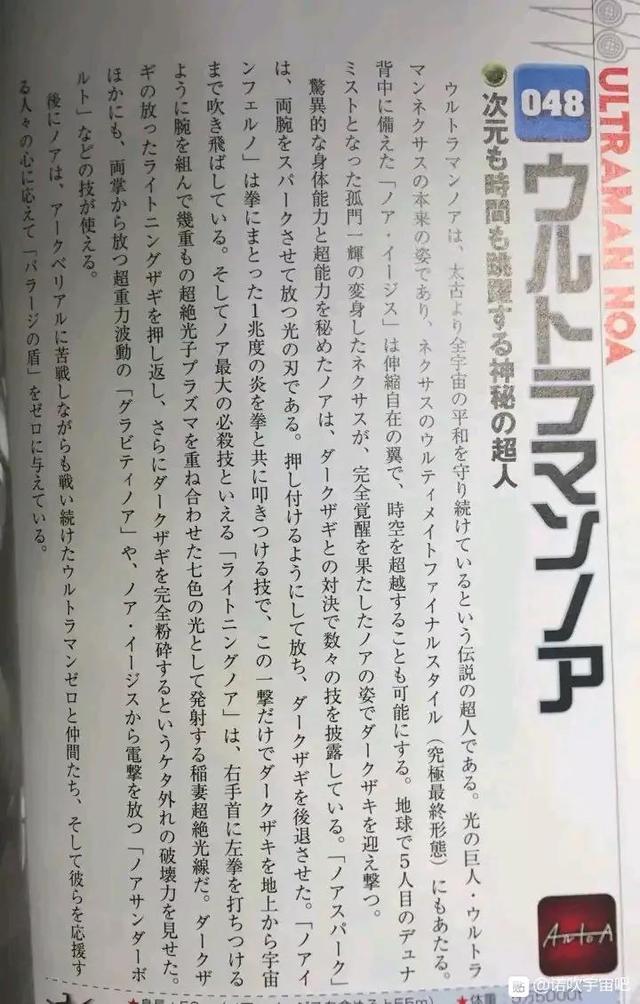 ULTRAMAN NOA
048 ウルトラマンノア
次元も時間も跳躍する神秘の超人
ウルトラマンノアは、太古より全宇宙の平和を守り続けているという伝説の超人である。光の巨人・ウルトラ
マンネクサスの本来の姿であり、ネクサスのウルティメイトファイナルスタイル(究極最終形態)にもあたる。
背中に備えた「ノア・イージス」は伸縮自在の翼で、時空を超越することも可能にする。地球で5人目のデュナ
ミストとなった孤門一輝の変身したネクサスが、完全覚醒を果たしたノアの姿でダークザギを迎え撃つ。
驚異的な身体能力と超能力を秘めたノアは、ダークザギとの対決で数々の技を披露している。「ノアスパーク」
は、両腕をスパークさせて放つ光の刃である。押し付けるようにして放ち、ダークザギを後退させた。「ノアイ
ンフェルノ」は拳にまとった1兆度の炎を拳と共に叩きつける技で、この一撃だけでダークザギを地上から宇宙
まで吹き飛ばしている。そしてノア最大の必殺技といえる「ライトニングノア」は、右手首に左拳を打ちつける
ように腕を組んで幾重もの超絶光子プラズマを重ね合わせた七色の光として発射する稲妻超絶光線だ。ダークザ
ギの放ったライトニングザギを押し返し、さらにダークザギを完全粉砕するというケタ外れの破壊力を見せた。
ほかにも、両掌から放つ超重力波動の「グラビティノア」や、ノア・イージスから電撃を放つ「ノアサンダーボ
ルト」などの技が使える。
後にノアは、アークベリアルに苦戦しながらも戦い続けたウルトラマンゼロと仲間たち、そして彼らを応援す
る人々の心に応えて「バラージの盾」をゼロに与えている。
AntoA
★体重
贴 @诺吹宇宙吧